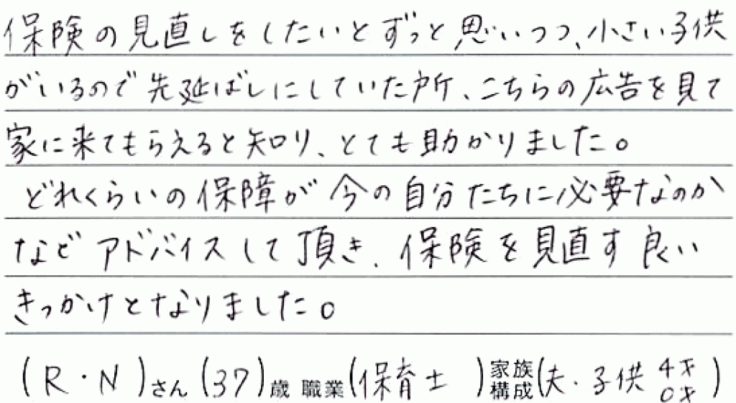 保険の見直しをしたいとずっと思いつつ、小さい子供
がいるので先延ばしにしていた所、こちらの広告を見て
家に来てもらえると知り、とても助かりました。
どれくらいの保障が今の自分たちに必要なのか
などアドバイスして頂き、保険を見直す良い
きっかけとなりました。
(R・N)さん(37)歳 職業(保育士 )家族構成(夫・子供 4才 0才)